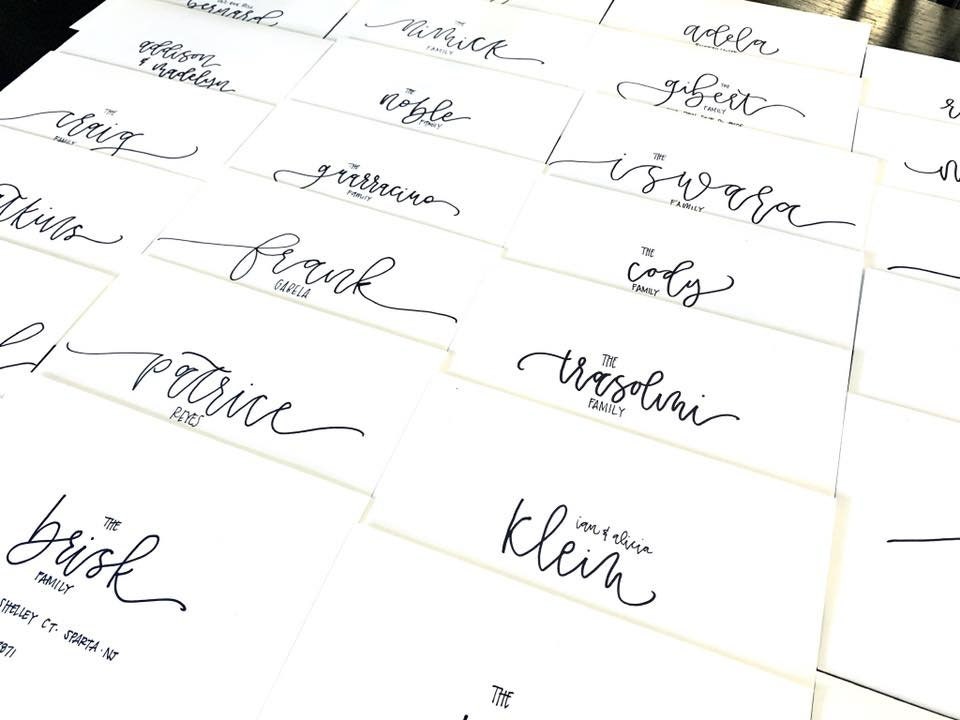 bernard
addison
& madelyn
THE
craig
FAMILY
atkins
THE
mimick
FAMILY
THE
noble
FAMILY
THE
guarracino
FAMILY
frank
GARELA
patrice
REYES
THE
brisk
FAMILY
SHELLEY CT. SPARTA · NJ
7871
adela
THE
gibert
FAMILY
THE
iswara
FAMILY
THE
cody
FAMILY
THE
trasolini
FAMILY
ian & alicia
klein
THE